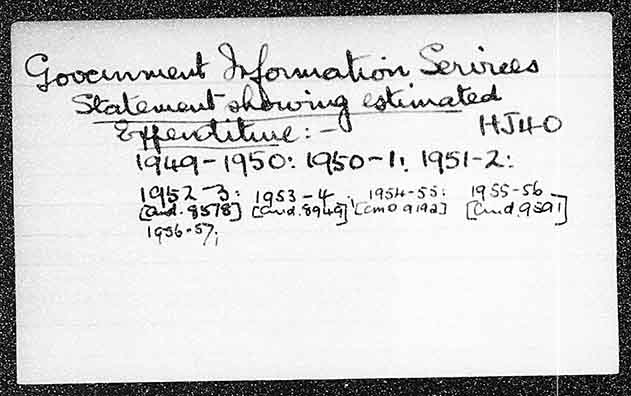 Government Information Services
Statement showing estimated
Expenditure:- HJ40
1949-1950: 1950-1: 1951-2:
1952-3: 1953-4: 1954-55: 1955-56
[Cmd.8578] [Cmd.8949] [CMD 9192] [Cmd.9591]
1956-57;